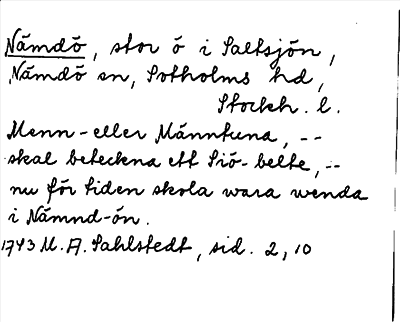 Nämdö, stor ö i Saltsjön,
Nämdö sn, Sotholms hd,
Stockh. l.
Menn- eller Männtuna, --
skal beteckna ett Siö-belte, --
nu för tiden skola wara wenda
i Nämnd-ön.
1743 M. A. Sahlstedt, sid. 2, 10